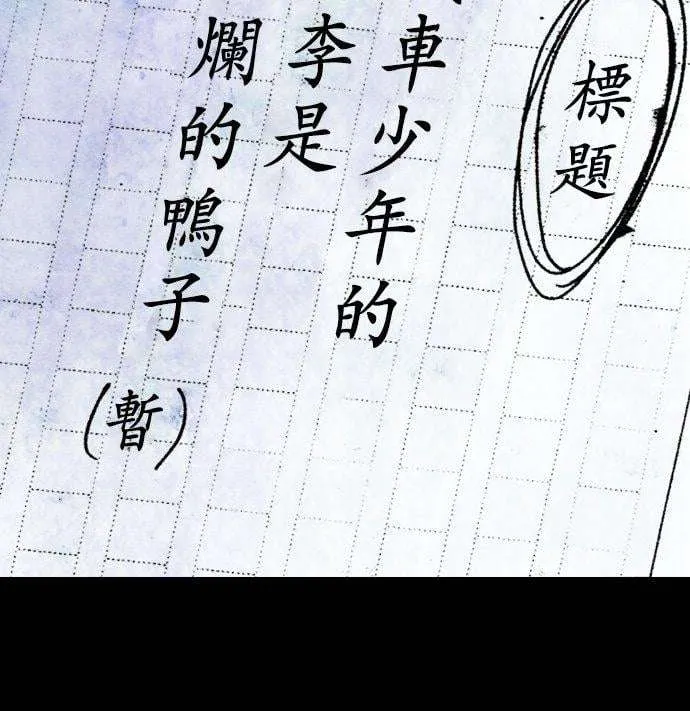 標題
車少年的
李是
爛的鴨子
(暫)